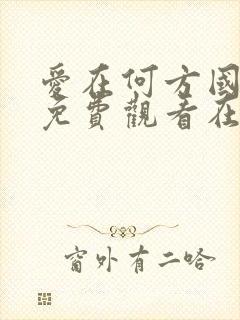 愛在何方國
免費觀看在
窗外有二哈